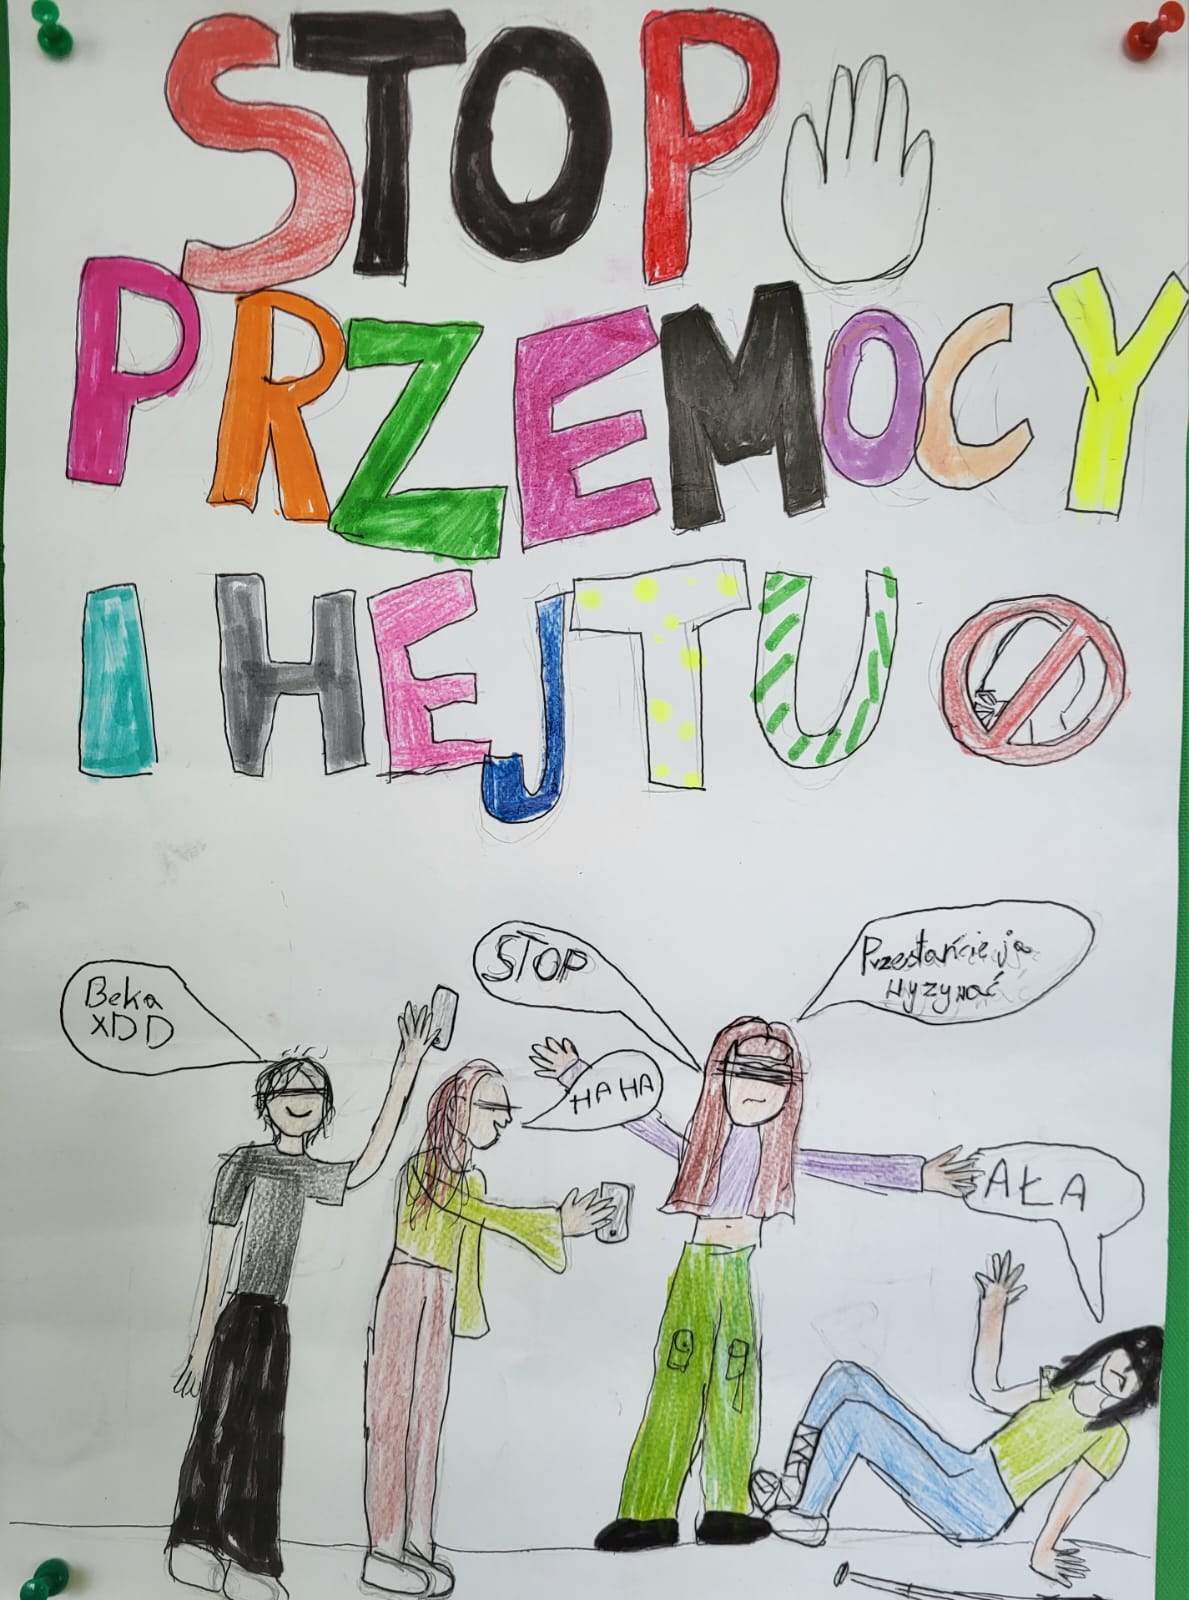 STOP
PRZEMOCY
I HEJTU
Beka
XDD
STOP
HA HA
Przestańcie ją
wyzywać
AŁA